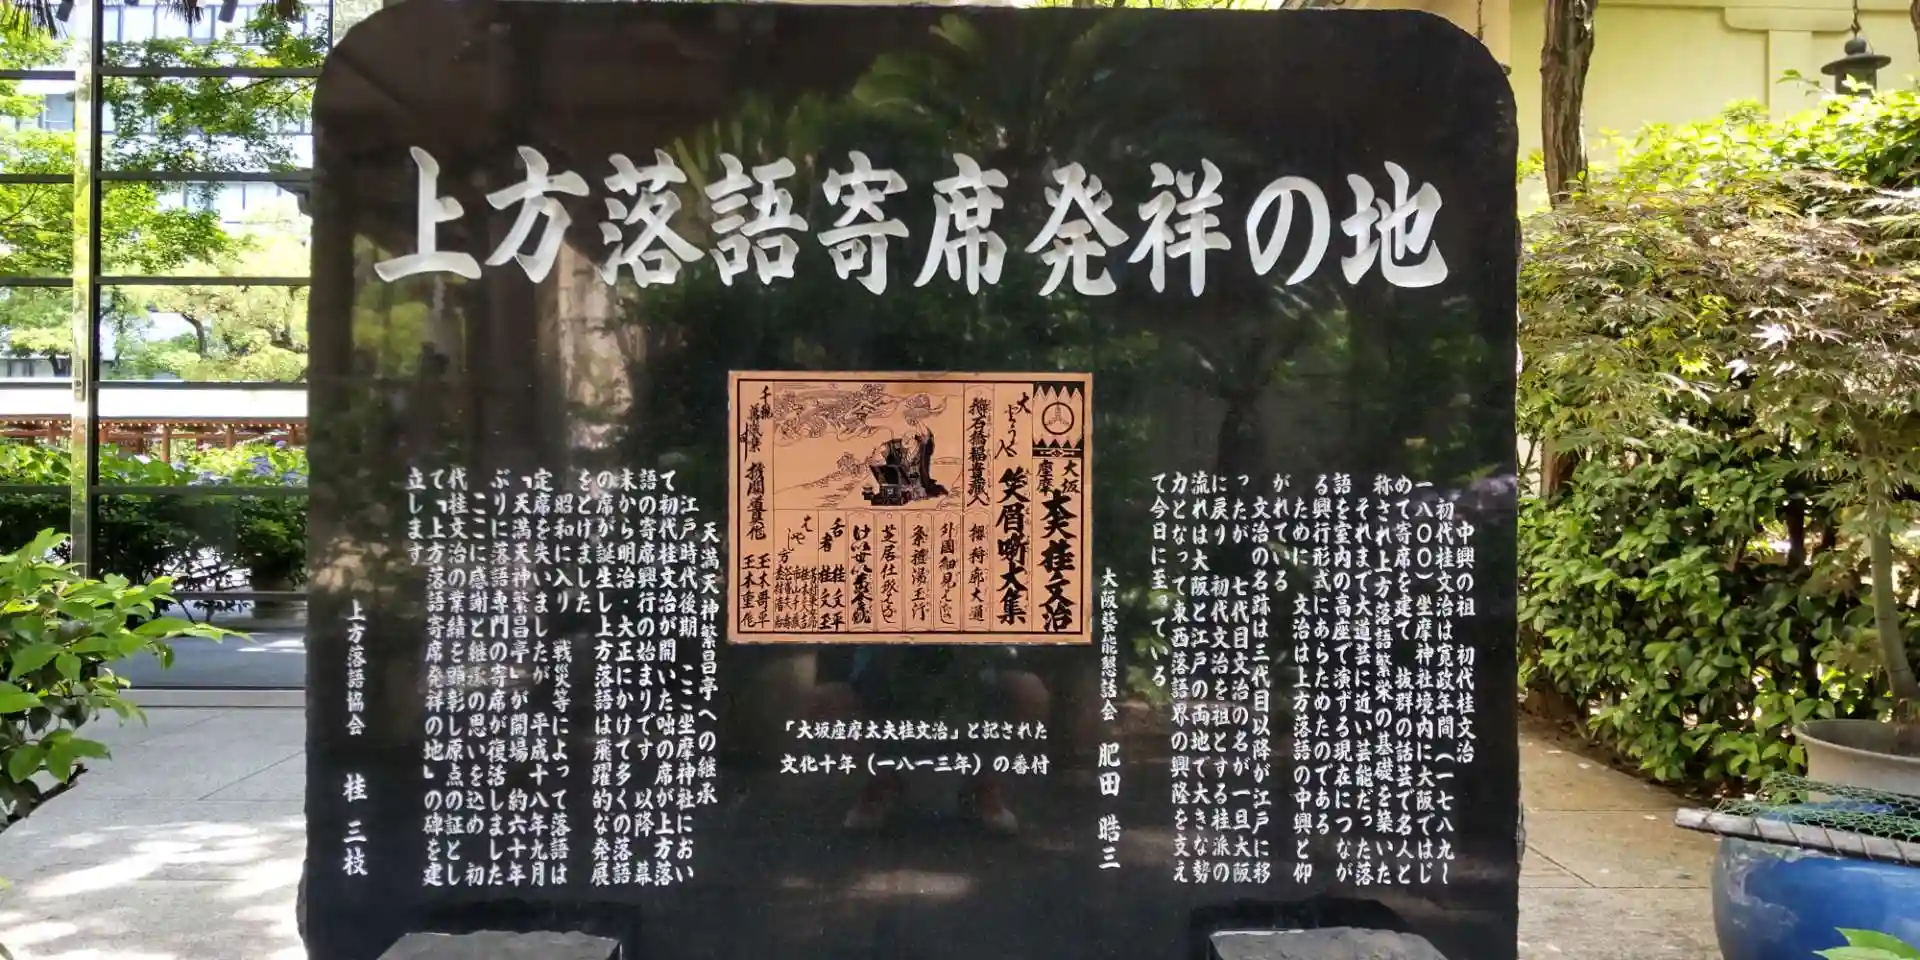 上方落語寄席発祥の地
中興の祖 初代桂文治
初代桂文治は寛政年間(一七八九~
一八〇〇)坐摩神社境内に大阪ではじ
めて寄席を建て 抜群の話芸で名人と
称され上方落語繁栄の基礎を築いた
それまで大道芸に近い芸能だった落
語を室内の高座で演ずる現在につなが
る興行形式にあらためたのである
ために 文治は上方落語の中興と仰
がれている
文治の名跡は三代目以降が江戸に移
ったが 七代目文治の名が一旦大阪
に戻り 初代文治を祖とする桂派の
流れは大阪と江戸の両地で大きな勢
力となって東西落語界の興隆を支え
て今日に至っている
大阪藝能懇話会 肥田 晧三
大坂
座摩
太夫桂文治
笑眉噺大集
「大坂座摩太夫桂文治」と記された
文化十年(一八一三年)の番付
天満天神繁昌亭への継承
江戸時代後期 ここ坐摩神社におい
て初代桂文治が開いた咄の席が上方落
語の寄席興行の始まりです 以降 幕
末から明治・大正にかけて多くの落語
の席が誕生し上方落語は飛躍的な発展
をとげました
昭和に入り 戦災等によって落語は
定席を失いましたが 平成十八年九月
「天満天神繁昌亭」が開場 約六十年
ぶりに落語専門の寄席が復活しました
ここに感謝と継承の思いを込め 初
代桂文治の業績を顕彰し原点の証とし
て「上方落語寄席発祥の地」の碑を建
立します
上方落語協会 桂 三枝